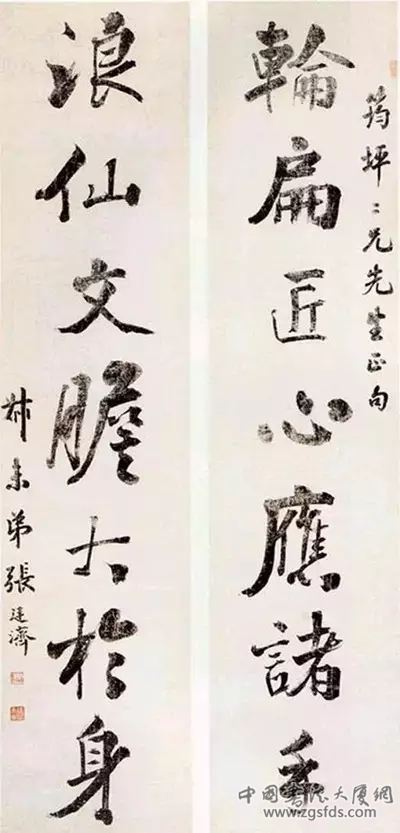 筠坪二兄先生正句
輪扁匠心應諸手
浪仙文膽大於身
叔未弟張廷濟
中國書法大厦網
www.zgsfds.com